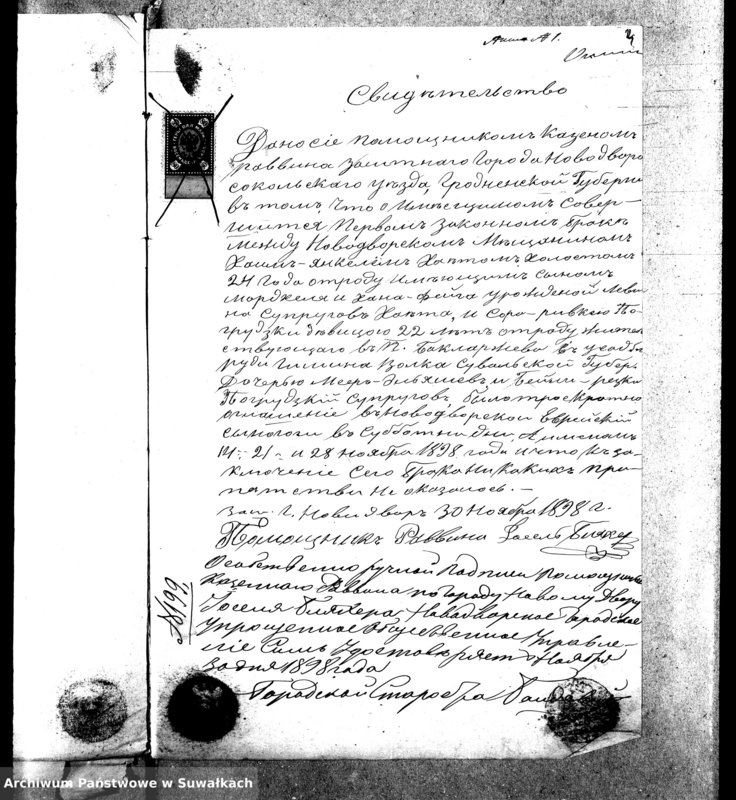 Анна № 1.
Свидѣтельство
Дано сіе помощникомъ казеномъ
раввина Заштнаго Города Новодвора
сокольскаго уѣзда, Гродненской Губерни
въ томъ, что о имѣющимъ совер-
шится Первомъ законномъ бракѣ
между Новодворскомъ Мѣщаниномъ
Хаимъ-Янкелемъ холостомъ
24 Года отроду имѣющимъ сыномъ
Мордхеля и Хана-Фейга урожденой
на Супруговъ и Сора-ривкею По-
грудзки дѣвицою 22 лѣтъ отроду, жител
ствующаго въ Бакларжево въ усадб
руди Гимина Волка Сувальской Губер.
Дочерью Меер-Эльяшевъ и Бейли-рецки
Погрудзкій Супруговъ, было троекратно
оглашеніе въ Новодворской Еврейскій
сынагоги въ Субботни дни,
14, 21 и 28 ноября 1898 года и что къ за-
ключеніе сего брака никакихъ пре-
пятстви не оказалось. —
заш. Г. Нови Дворъ 30 Ноября 1898 г.
Помощникъ Раввина
№ 199
Собственно ручной подписи помощника
Казеннаго Раввина по городу Новому Двору
Новодворское Городское
Упрощенное Общественное Управле-
ніе Симъ Удостовѣряетъ Ноября
30 дня 1898 года
Городской Староста
Archiwum Państwowe w Suwałkach